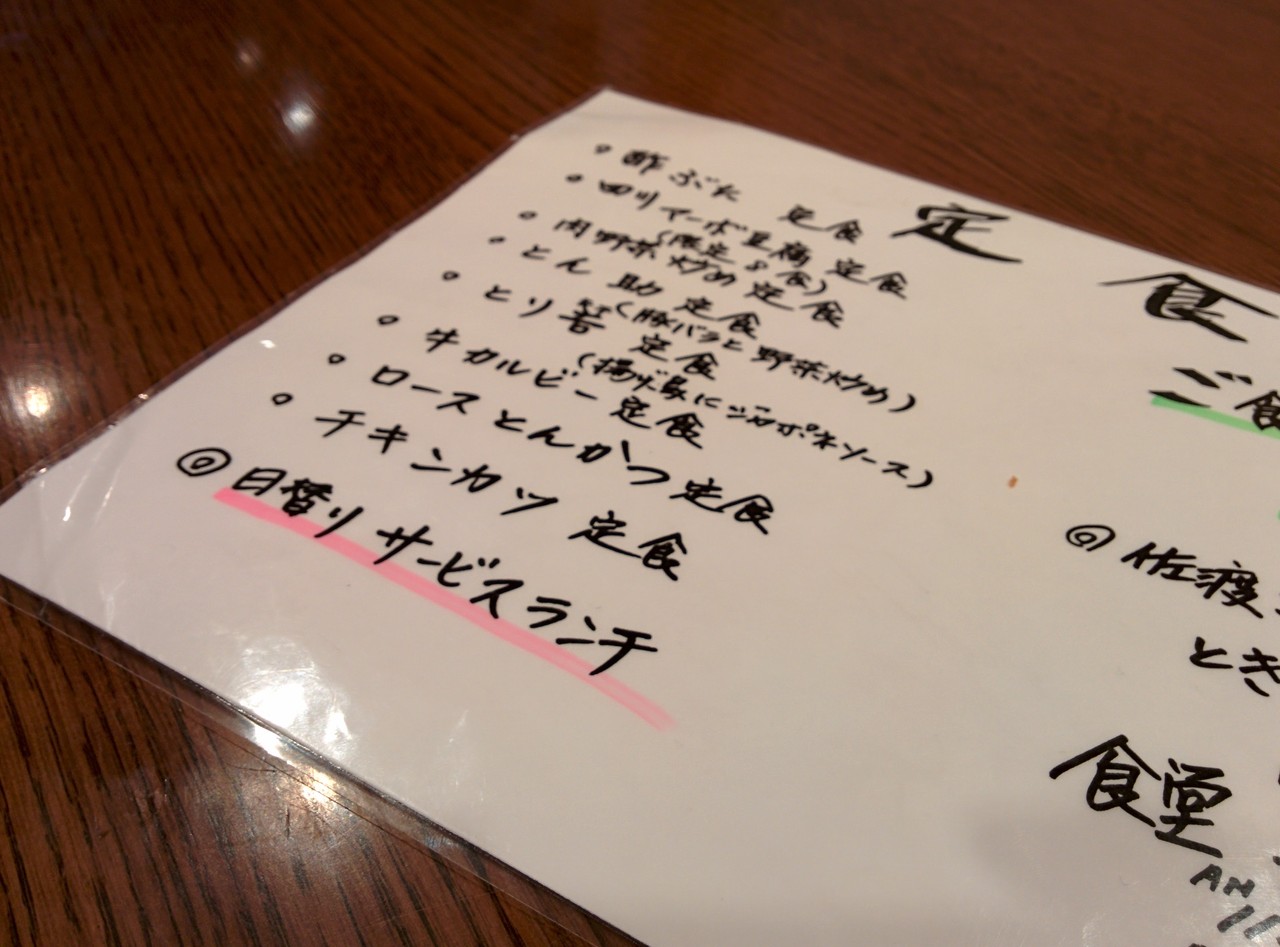 定食
• 酢ぶた 定食
• 四川マーボ豆腐 定食
(限定8食)
• 肉野菜炒め 定食
• とん助 定食
(豚バラと野菜炒め)
• とり 定食
(揚げ鳥にジャポネソース)
• 牛カルビー定食
• ロースとんかつ定食
• チキンカツ 定食
◎ 日替り サービスランチ
ご食
◎ 佐渡
とき
食堂
AM